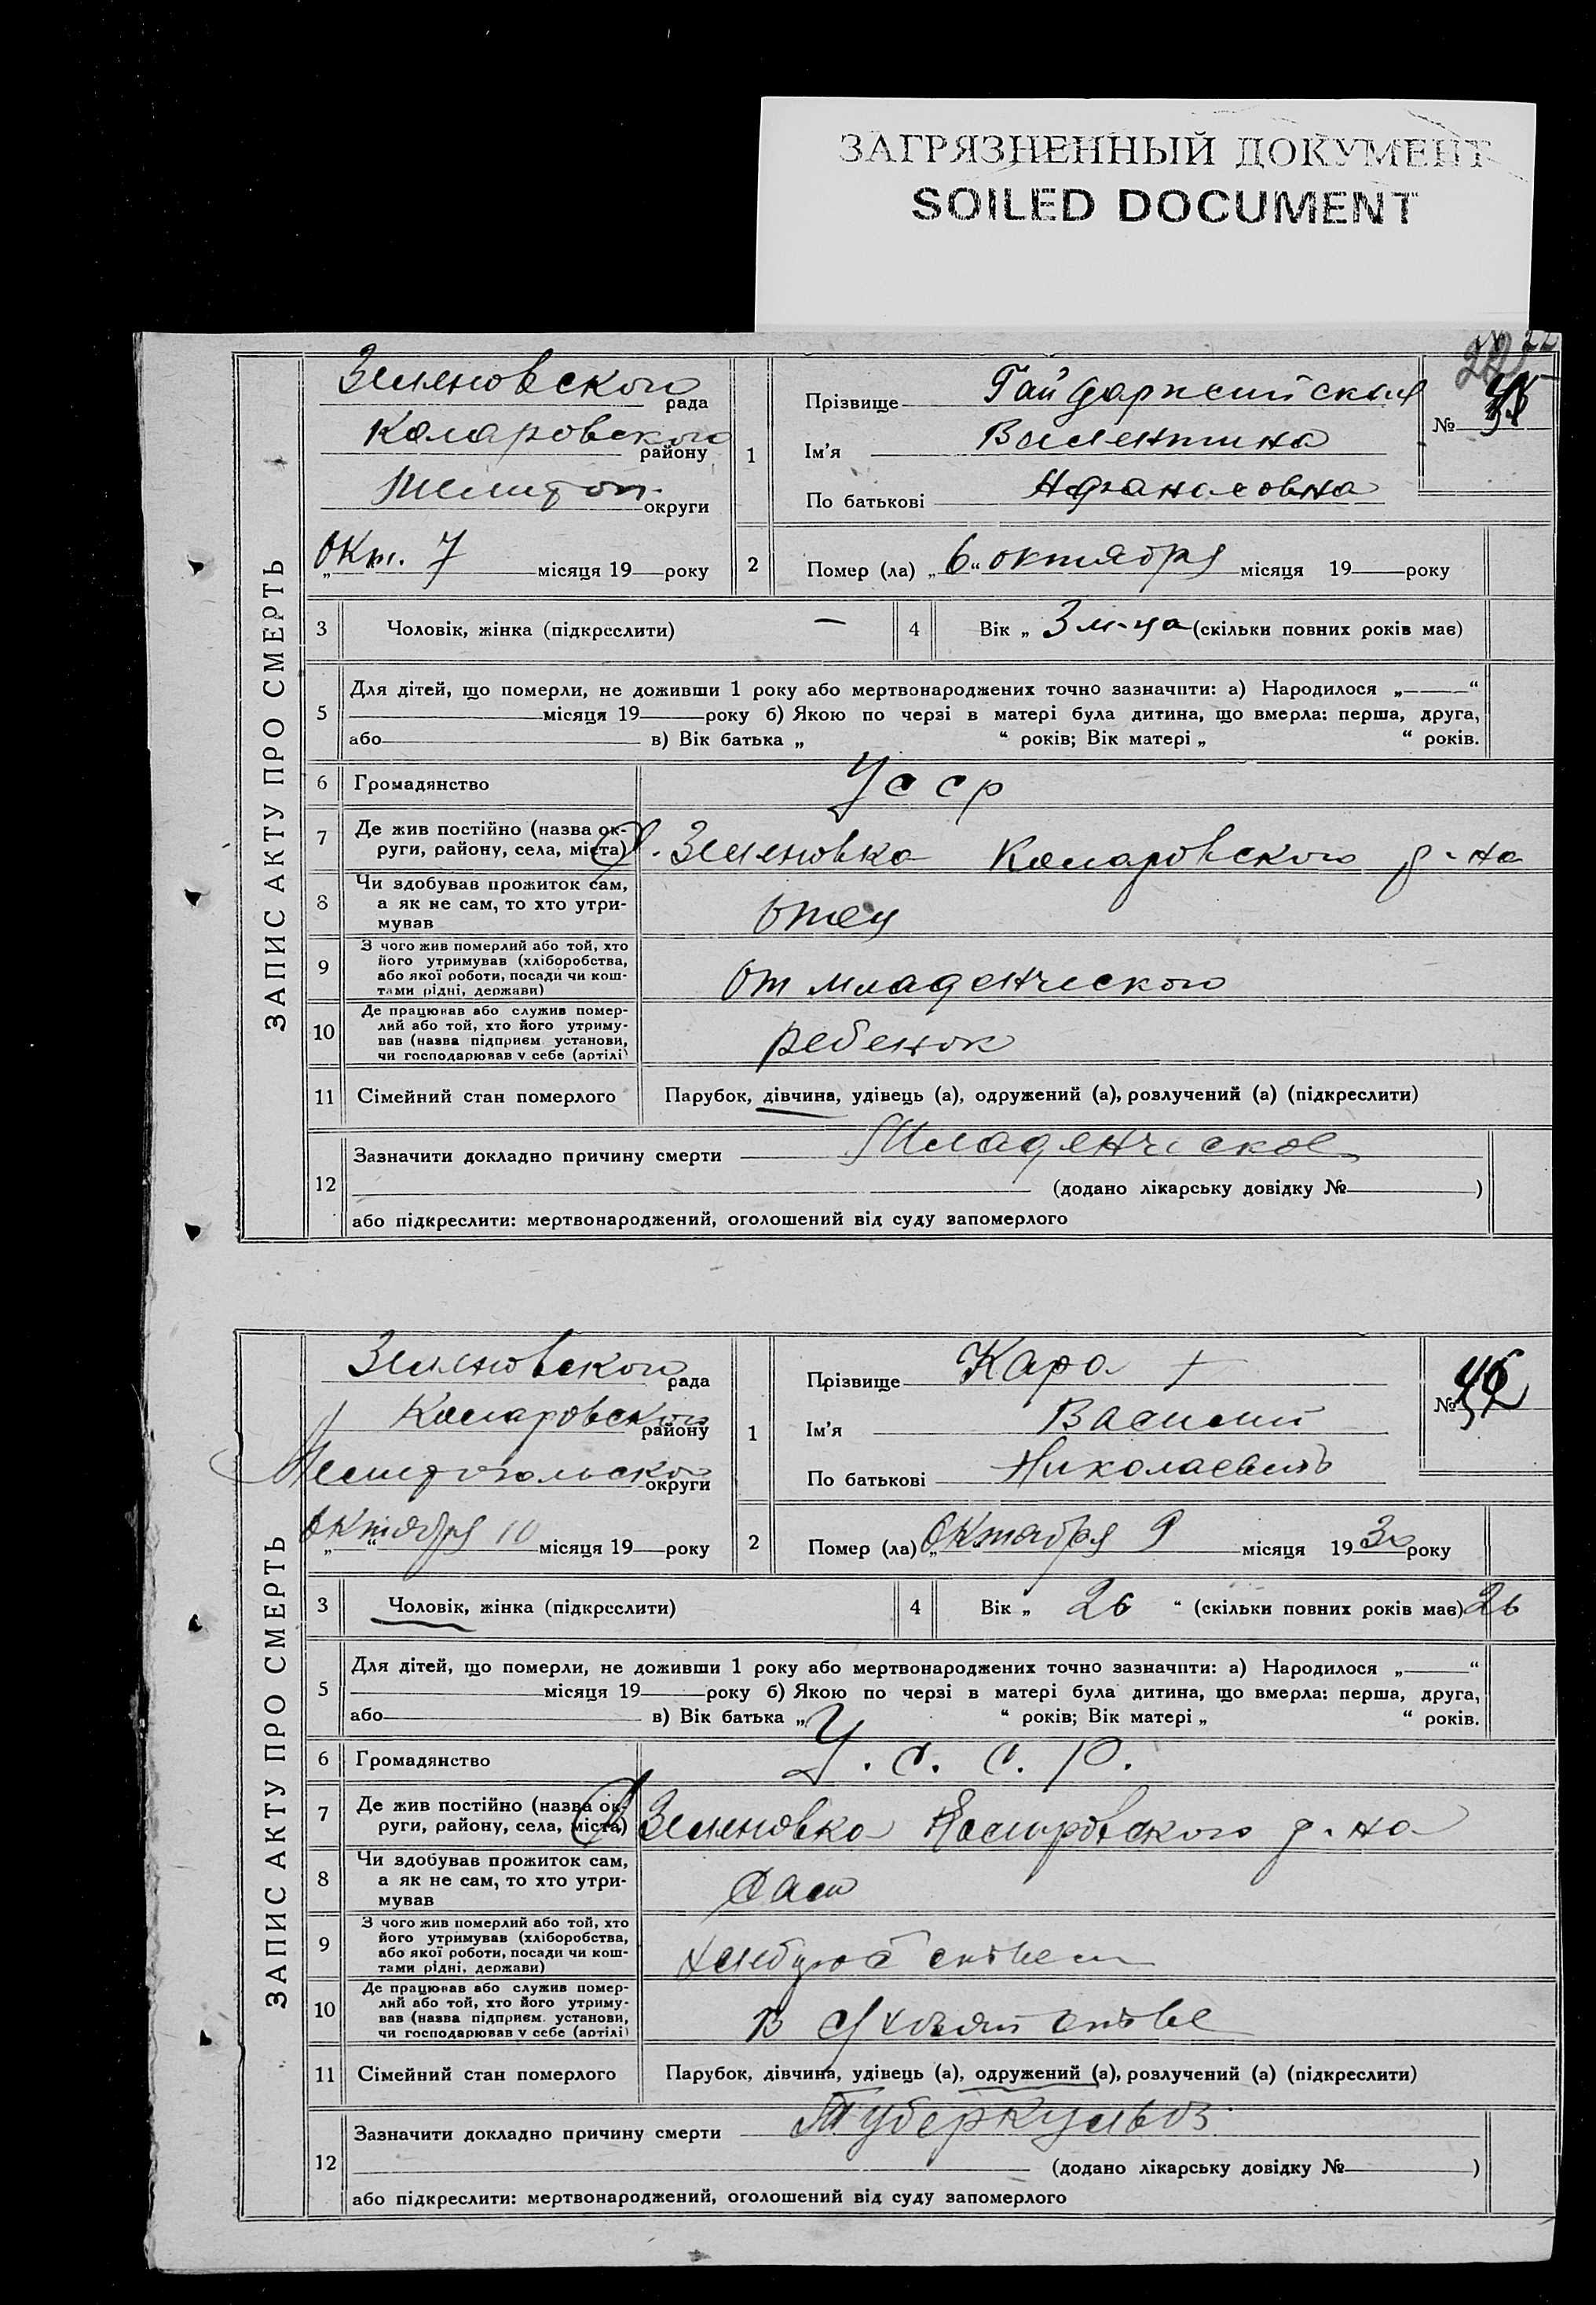 ЗАГРЯЗНЕННЫЙ ДОКУМЕНТ
SOILED DOCUMENT
22
ЗАПИС АКТУ ПРО СМЕРТЬ
Зеленовского рада
Коларовского району
Мелитоп. округи
Окт. 7 місяця 19 року
1
Прізвище Гайдаржийская
Ім'я Валентина
По батькові Афанасовна
№
2 Помер (ла) „6“ октября місяця 19 року
3 Чоловік, жінка (підкреслити) —
4 Вік „ 3 м-ца (скільки повних років має)
5 Для дітей, що померли, не доживши 1 року або мертвонароджених точно зазначити: а) Народилося „ “
місяця 19 року б) Якою по черзі в матері була дитина, що вмерла: перша, друга,
або в) Вік батька „ “ років; Вік матері „ “ років.
6 Громадянство Усср
7 Де жив постійно (назва ок-
руги, району, села, міста) С. Зеленовка Коларовского р-на
8 Чи здобував прожиток сам,
а як не сам, то хто утри-
мував отец
9 З чого жив померлий або той, хто
його утримував (хліборобства,
або якої роботи, посади чи кош-
тами рідні, держави) от младенческого
10 Де працював або служив помер-
лий або той, хто його утриму-
вав (назва підприєм. установи,
чи господарював у себе (артілі) ребенок
11 Сімейний стан померлого Парубок, дівчина, удівець (а), одружений (а), розлучений (а) (підкреслити)
12 Зазначити докладно причину смерти Младенческое
(додано лікарську довідку № )
або підкреслити: мертвонароджений, оголошений від суду запомерлого
ЗАПИС АКТУ ПРО СМЕРТЬ
Зеленовского рада
Коларовского району
Мелитопольско округи
Октября 10 місяця 19 року
1
Прізвище Кара +
Ім'я Василий
По батькові Николаевич
№
2 Помер (ла) „ Октября 9 місяця 1930 року
3 Чоловік, жінка (підкреслити)
4 Вік „ 26 “ (скільки повних років має) 26
5 Для дітей, що померли, не доживши 1 року або мертвонароджених точно зазначити: а) Народилося „ “
місяця 19 року б) Якою по черзі в матері була дитина, що вмерла: перша, друга,
або в) Вік батька „ “ років; Вік матері „ “ років.
6 Громадянство У. с. с. р.
7 Де жив постійно (назва ок-
руги, району, села, міста) С Зеленовка Коларовского р-на
8 Чи здобував прожиток сам,
а як не сам, то хто утри-
мував Сам
9 З чого жив померлий або той, хто
його утримував (хліборобства,
або якої роботи, посади чи кош-
тами рідні, держави)
10 Де працював або служив помер-
лий або той, хто його утриму-
вав (назва підприєм. установи,
чи господарював у себе (артілі) В
11 Сімейний стан померлого Парубок, дівчина, удівець (а), одружений (а), розлучений (а) (підкреслити)
12 Зазначити докладно причину смерти Туберкульоз
(додано лікарську довідку № )
або підкреслити: мертвонароджений, оголошений від суду запомерлого